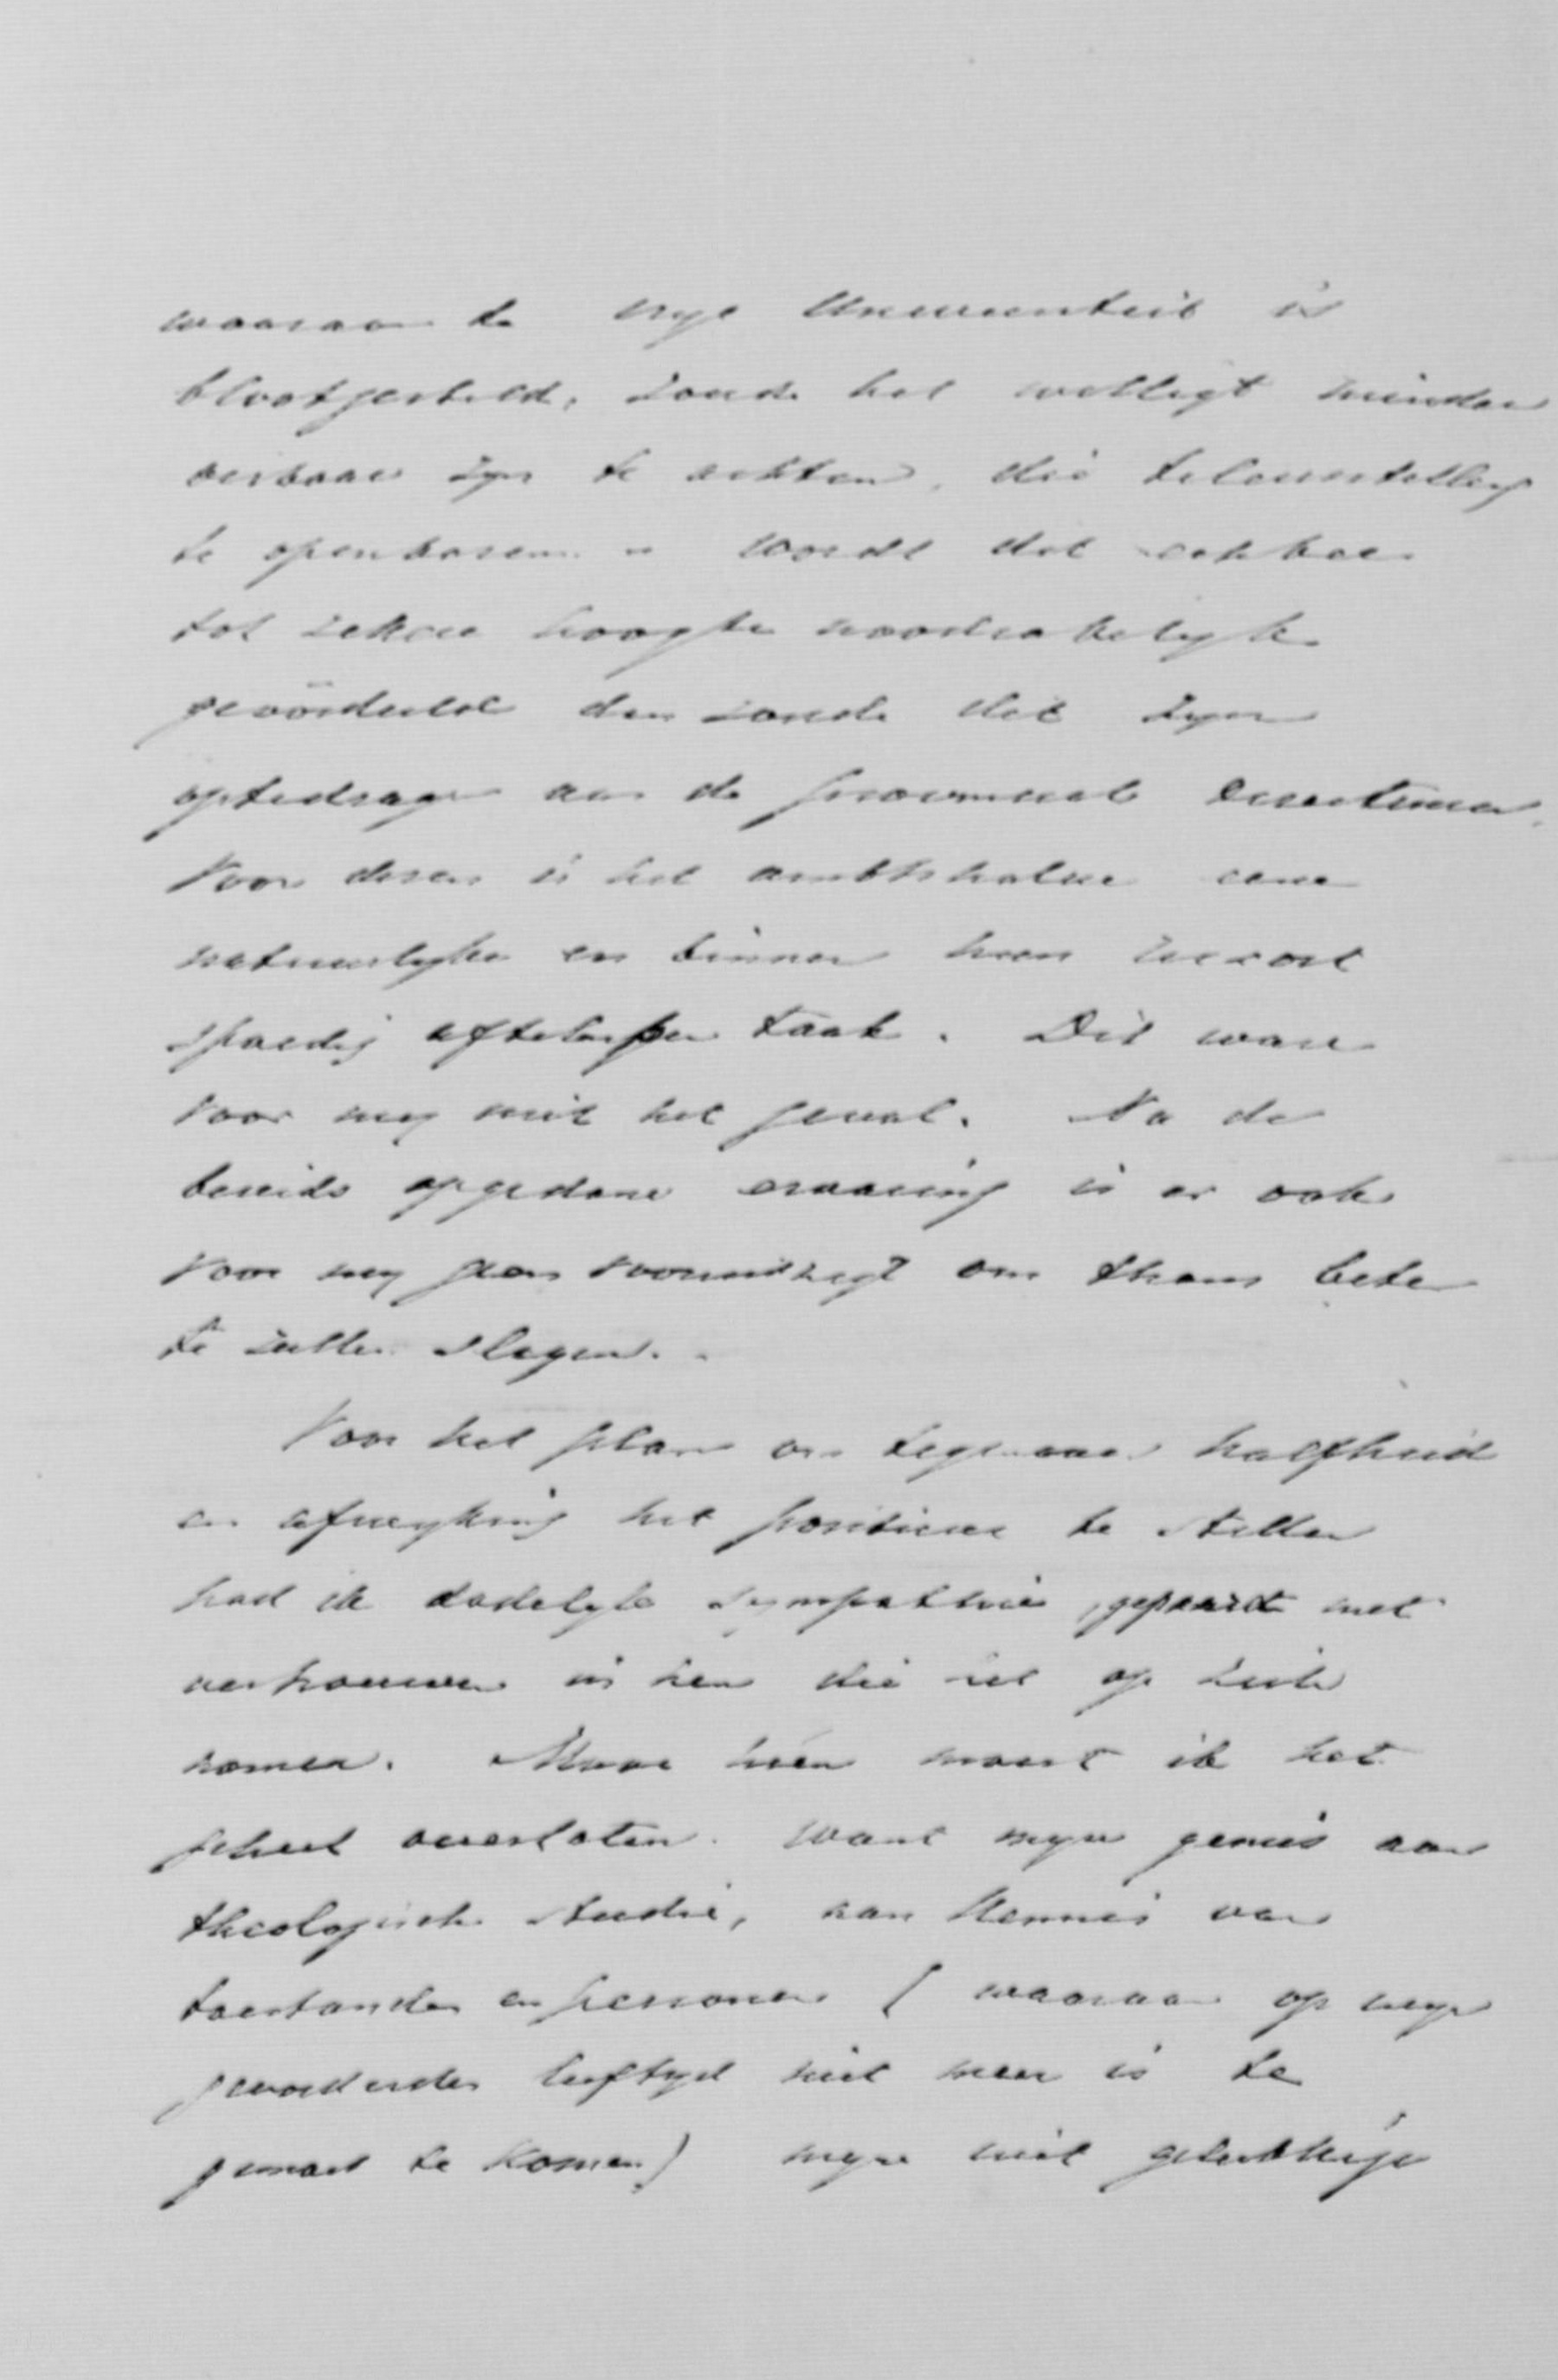 waaraan de Vrye Universiteit is
blootgesteld, zoude het welligt minder
oirbaar zyn te achten, die teleurstelling
te openbaren. – Wordt dat echter
tot zekere hoogte noodzakelyk
geoordeeld dan zoude dit zyn
optedragen aan de provinciale Directeuren.
Voor dezen is het ambtshalve eene
natuurlyke en binnen hun ressort
spoedig aftelopen taak. Dit ware
voor my niet het geval. Na de
bereids opgedane ervaring is er ook
voor my geen vooruitzigt om thans beter
te zullen slagen. –
Voor het plan om tegenover halfheid
en afwyking het positieve te stellen
had ik dadelyk sympathie, gepaard met
vertrouwen in hen die het op zich
nemen. Maar hún moest ik het
geheel overlaten. Want myn gemis aan
theologische studie, aan kennis van
toestanden en personen (waaraan op myn
gevorderden leeftyd niet meer is te
gemoet te komen) myne niet gelukkige